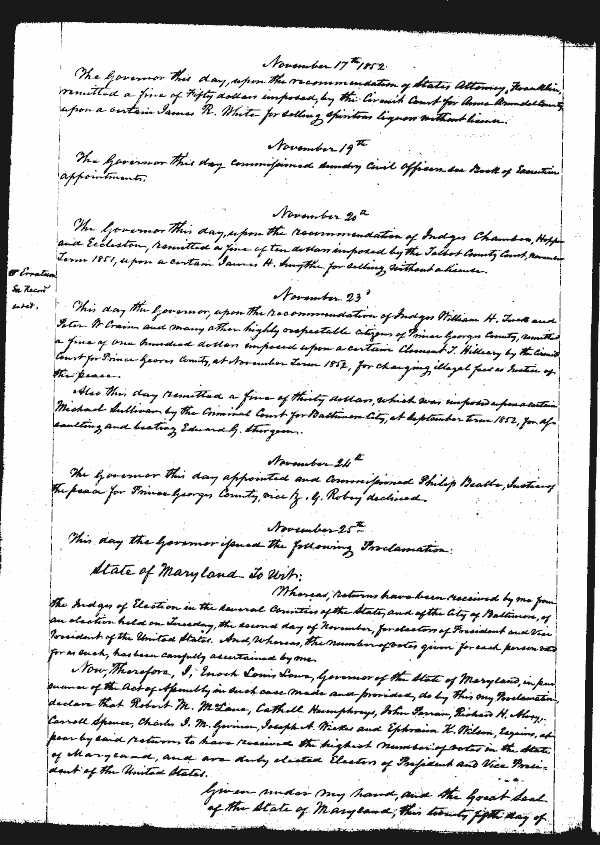 November 17th 1852.
The Governor this day, upon the recommendation of States Attorney, Franklin,
remitted a fine of Fifty dollars imposed, by the Circuit Court for Anne Arundel County,
upon a certain James R. White for selling spiritous liquors without license.
November 19th
The Governor this day commissioned sundry Civil Officers see Book of Executive
appointments.
November 20th
The Governor this day, upon the recommendation of Judges Chambers, Hopper
and Eccleston, remitted a fine of ten dollars imposed by the Talbot County Court,
Term 1851, upon a certain James H. Smythe for selling without a license.
See Record
November 23d
This day the Governor, upon the recommendation of Judges William H. Tuck and
Peter W Crain and many other highly respectable citizens of Prince Georges County, remitted
a fine of one hundred dollars imposed upon a certain Clement T. Hilleary by the Circuit
Court for Prince Georges County, at November Term 1852, for charging illegal fees as Justice of
the peace.
Also this day remitted a fine of thirty dollars, which was imposed upon a certain
Michael Sullivan by the Criminal Court for Baltimore City, at September term 1852, for as-
saulting and beating Edward G.
November 24th
The Governor this day appointed and commissioned Philip Beall, Justice of
the peace for Prince Georges County, vice G. Robey declined.
November 25th
This day the Governor issued the following Proclamation:
State of Maryland To Wit:
Whereas, returns have been received by me from
the Judges of Election in the several Counties of the State, and of the City of Baltimore, of
an election held on Tuesday, the second day of November, for electors of President and Vice
President of the United States. And, Whereas, the number of votes given for each person voted
for as such, has been carefully ascertained by me.
Now, Therefore, I, Enoch Louis Lowe, Governor of the State of Maryland, in pur-
suance of the Act of Assembly in such case made and provided, do by this my Proclamation,
declare that Robert M. McLane, Cathell Humphreys, John Parran, Richard H. Alvey,
Carroll Spence, Charles J. M. Gwinn, Joseph A. Wickes and Ephraim K. Wilson, Esquires, ap-
pear by said returns to have received the highest number of votes in the State
of Maryland, and are duly elected Electors of President and Vice Presi-
dent of the United States.
Given under my hand, and the Great Seal
of the State of Maryland, this twenty fifth day of